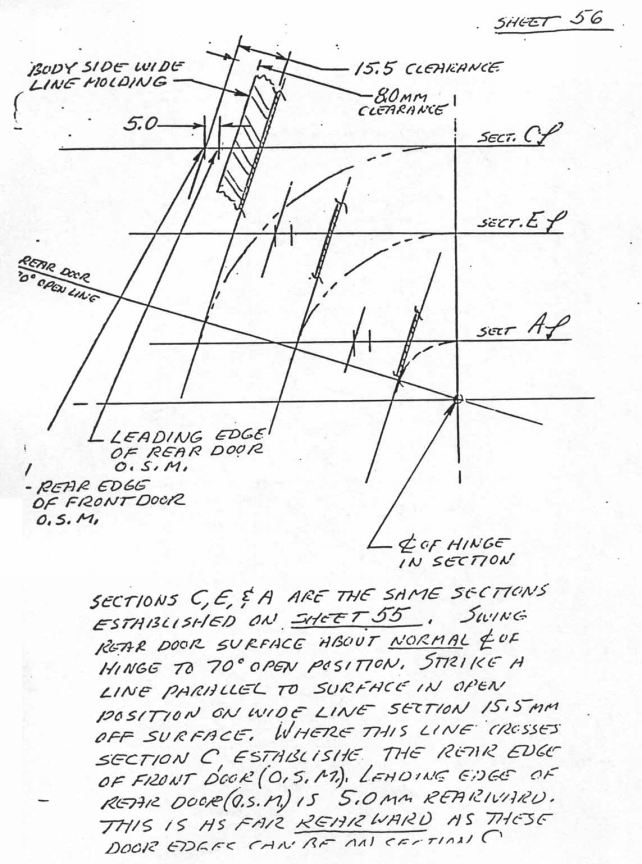 SHEET 56
BODY SIDE WIDE
LINE MOLDING
15.5 CLEARANCE
8.0MM
CLEARANCE
5.0
SECT. C
SECT. E
REAR DOOR
70° OPEN LINE
SECT A
LEADING EDGE
OF REAR DOOR
O.S.M.
REAR EDGE
OF FRONT DOOR
O.S.M.
℄ OF HINGE
IN SECTION
SECTIONS C, E, & A ARE THE SAME SECTIONS
ESTABLISHED ON SHEET 55. SWING
REAR DOOR SURFACE ABOUT NORMAL ℄ OF
HINGE TO 70° OPEN POSITION. STRIKE A
LINE PARALLEL TO SURFACE IN OPEN
POSITION ON WIDE LINE SECTION 15.5MM
OFF SURFACE. WHERE THIS LINE CROSSES
SECTION C, ESTABLISHE THE REAR EDGE
OF FRONT DOOR (O.S.M.). LEADING EDGE OF
REAR DOOR (O.S.M.) IS 5.0MM REARWARD.
THIS IS AS FAR REARWARD AS THESE
DOOR EDGES CAN BE ON SECTION C